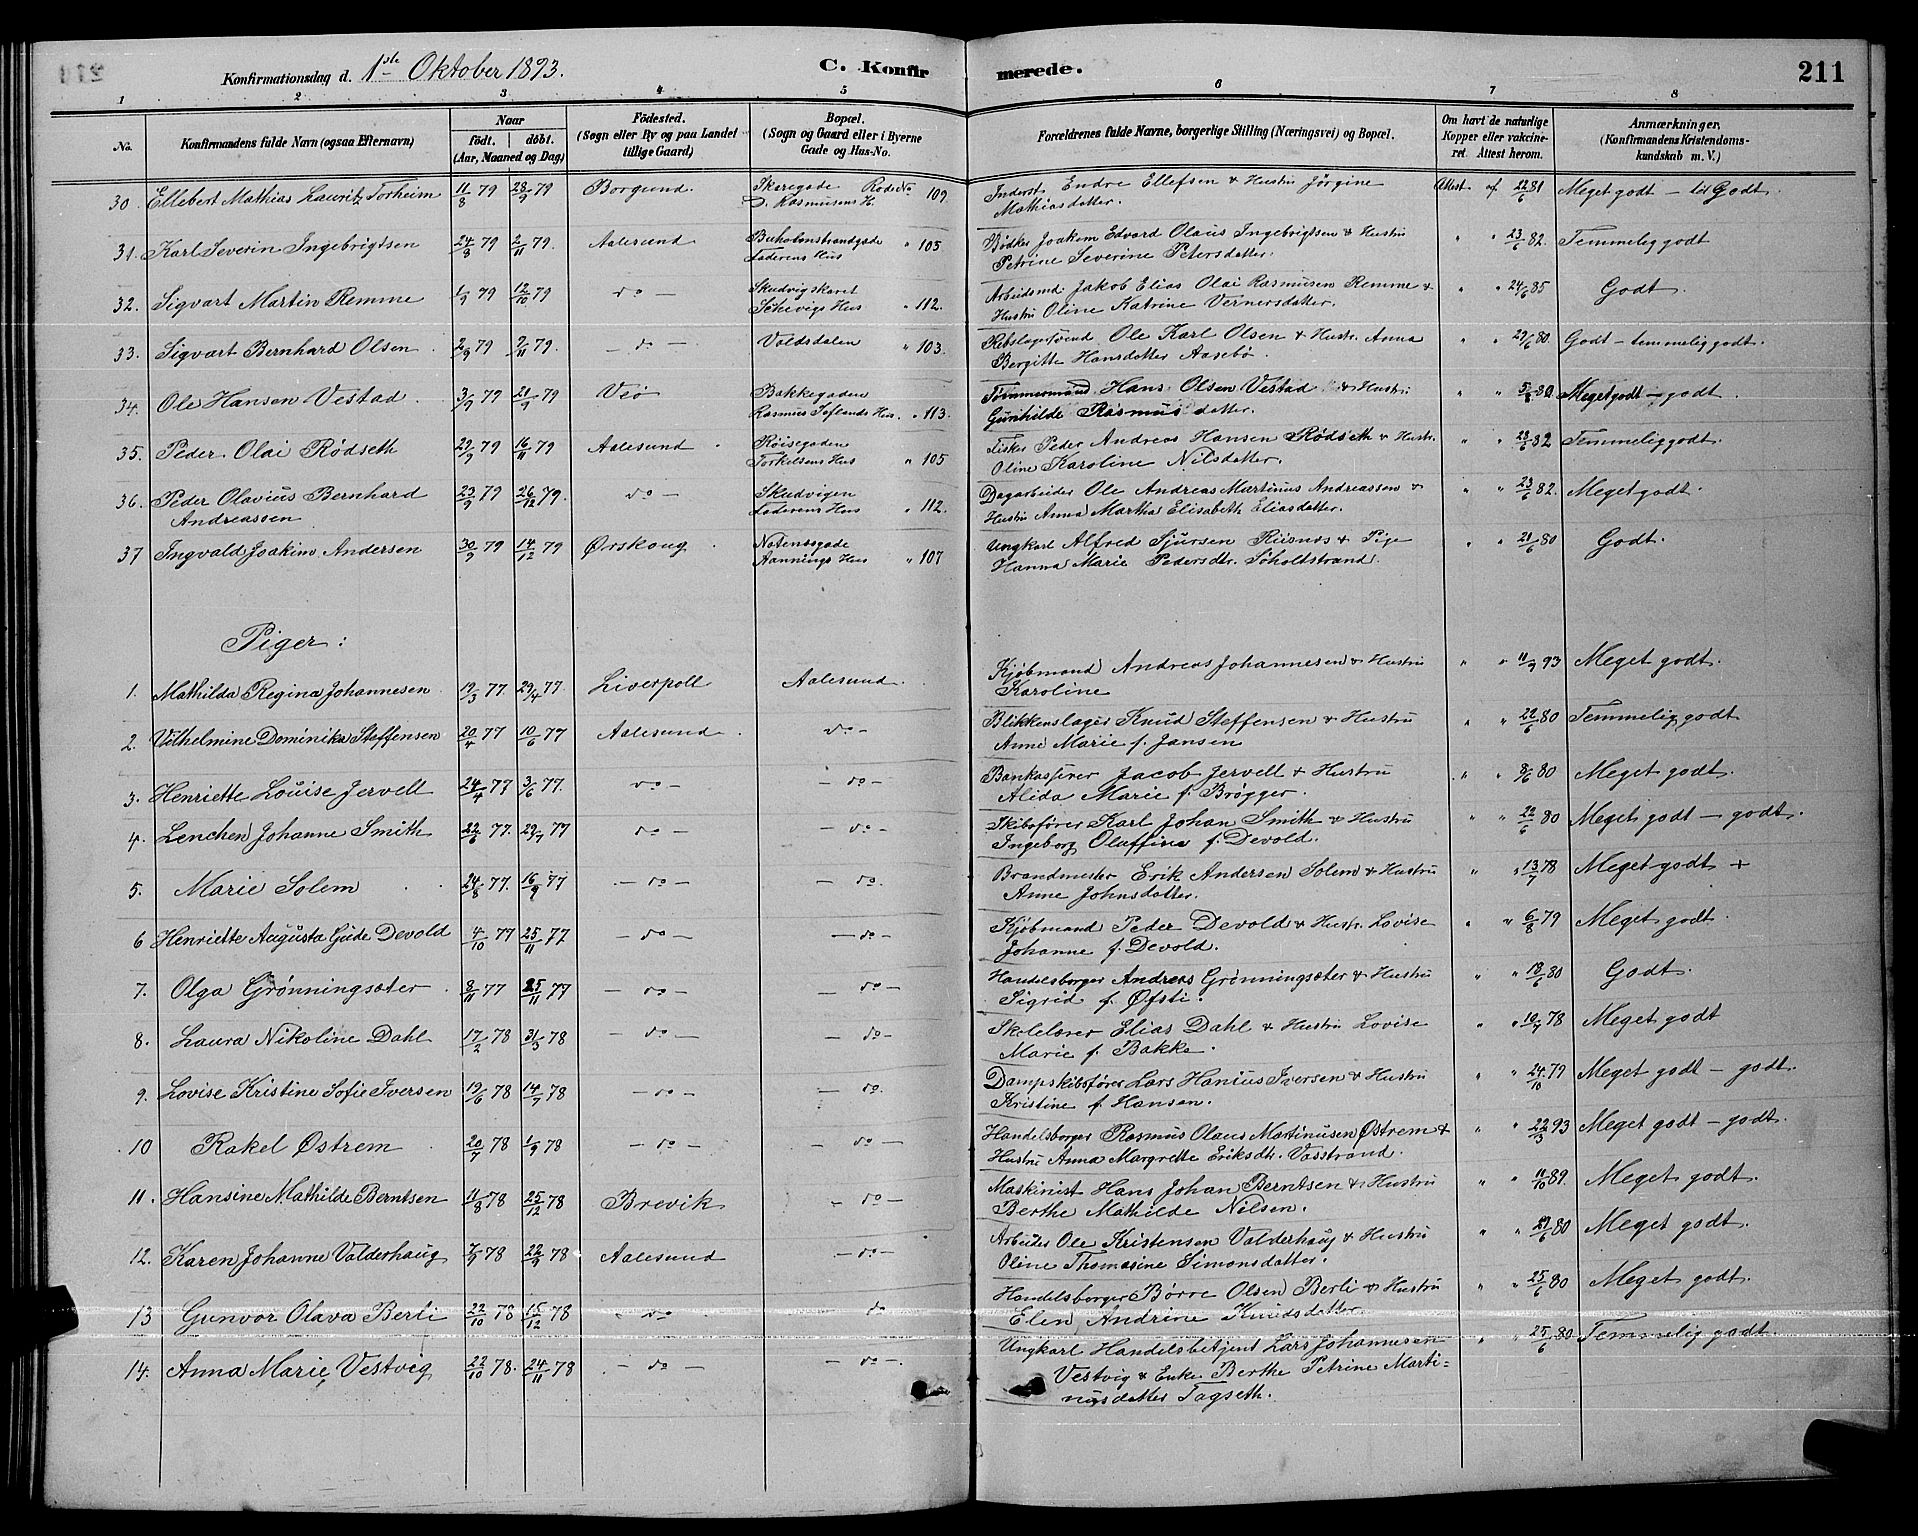 211
Konfirmationsdag d. 1ste Oktober 1893. C. Konfirmerede.
1 2 3 4 5 6 7 8
No. Konfirmandens fulde Navn (ogsaa Efternavn) Naar födt. döbt. (Aar, Maaned og Dag) Födested. (Sogn eller By og paa Landet tillige Gaard) Bopæl. (Sogn og Gaard eller i Byerne Gade og Hus-No. Forældrenes fulde Navne, borgerlige Stilling (Næringsvei) og Bopæl. Om havt de naturlige Kopper eller vakcineret. Attest herom. Anmærkninger. (Konfirmandens Kristendomskundskab m. V.)
30. Ellebert Mathias Lauritz Torheim 11/8 79 28/9 79 Borgund. Skaregade Rode No 109. Rasmusens H. Inderst Endre Ellefsen & Hustru Jörgine Mathiasdatter. Attest af 22/6 81 Meget godt - Godt.
31. Karl Severin Ingebrigtsen 24/8 79 2/11 79. Aalesund Buholmstrandgade Faderens Hus " 105 Bödker Joakim Edvard Olaus Ingebrigtsen & Hustru Petrine Severine Petersdatter. " " 23/6 82. Temmelig godt
32. Sigvart Martin Remme 1/9 79 12/10 79 do - Skudvigskaret Schevigs Hus " 112. Arbeidsmd Jakob Elias Olai Rasmusen Remme & Hustru Oline Katrine Vernersdatter. " " 24/6 85 Godt.
33. Sigvart Bernhard Olsen 2/9 79 2/11 79. - do - Voldsdalen " 103. Rebslagersvend Ole Karl Olsen & Hustr. Anna Bergitte Hansdatter Aasebö. " " 29/6 80. Godt - temmelig godt.
34. Ole Hansen Vestad 3/9 79 21/9 79 Veö Bakkegaden Rasmus Hus. " 113. Tömmermand Hans Olsen Vestad & Hustru Gunhilde Rasmusdatter. " " 5/8 80 Meget godt - godt.
35. Peder Olai Rödseth 29/9 79 16/11 79 Aalesund Röisegaden Torkelsens Hus " 105 Fisker Peder Andreas Hansen Rödseth & Hustr. Oline Karoline Nilsdatter. " " 23/6 82 Temmelig godt.
36. Peder Olavius Bernhard Andreassen 23/9 79 26/12 79. do - Skudvigen Faderens Hus " 112. Dagarbeider Ole Andreas Martinus Andreassen & Hustru Anna Martha Elisabeth Eliasdatter. " " 23/6 82. Meget godt.
37 Ingvald Joakim Andersen 30/9 79 14/12 79 Ørskoug Notenesgade Aannings Hus " 107 Ungkarl Alfred Sjursen Riisnæs & Pige Hanna Marie Pedersdtr. Söholtstrand. " " 21/6 80 Godt.
Piger:
1. Mathilda Regina Johannesen 19/3 77 29/4 77. Liverpoll Aalesund. Kjöbmand Andreas Johannesen & Hustru Karoline " " 11/9 93 Meget godt.
2. Vilhelmine Dominika Steffensen 20/4 77 10/6 77 Aalesund. do - Blikkenslager Knud Steffensen & Hustru Anne Marie f. Jansen " " 22/6 80 Temmelig godt
3. Henriette Louise Jervell 24/4 77 3/6 77. do - - do - Bankasserer Jacob Jervell & Hustru Alida Marie f. Brögger. " " 8/6 80 Meget godt.
4. Lenchen Johanne Smith 22/6 77. 29/7 77 do - - do - Skibsförer Karl Johan Smith & Hustru Ingeborg Olaffina f. Devold. " " 22/6 80 Meget godt - godt.
5. Marie Solem 24/8 77. 16/9 77 - do - - do. Brandmester Erik Andersen Solem & Hustru Anne Johnsdatter. " " 13/7 78 Meget godt +
6 Henriette Augusta Gude Devold 4/10 77 25/11 77 - do - - do - Kjöbmand Peder Devold & Hustr. Lovise Johanne f. Devold. " " 6/8 79 Meget godt.
7. Olga Grönningsæter 8/11 77 25/11 77 - do - - do - Handelsborger Andreas Grönningsæter & Hustru Sigrid f. Øfsti. " " 18/6 80 Godt.
8. Laura Nikoline Dahl 17/2 78 31/3 78 - do - - do - Skolelærer Elias Dahl & Hustru Lovise Marie f. Bakke. " " 10/7 78 Meget godt
9. Lovise Kristine Sofie Iversen 19/6 78 14/7 78 - do - - do. Dampskibsförer Lars Hanius Iversen & Hustru Kristine f. Hansen. " " 24/10 79 Meget godt - godt.
10 Rakel Østrem 20/7 78 1/9 78 - do - - do - Handelsborger Rasmus Olaus Martinusen Østrem & Hustru Anna Margrette Eriksdtr. Vasstrand. " " 22/3 93 Meget godt - godt.
11. Hansine Mathilde Berntsen 11/8 78 25/12 78 Brevik - do - Maskinist Hans Johan Berntsen & Hustru Berthe Mathilde Nilsen. " " 11/10 89. Meget godt.
12. Karen Johanne Valderhaug 7/9 78 22/9 78 Aalesund - do - Arbeider Ole Kristensen Valderhaug & Hustru Oline Thomasine Simonsdatter. " " 29/6 80 Meget godt.
13 Gunvor Olava Berli 22/10 78 15/12 78 - do - do Handelsborger Börre Olsen Berli & Hustru Elen Andrine Knudsdatter " " 25/6 80 Meget godt.
14. Anna Marie Vestvig 22/10 78. 24/11 78 - do - - do -. Ungkarl Handelsbetjent Lars Johannesen Vestvig & Enke Berthe Petrine Martinusdatter Tagseth. " " 25/6 80 Temmelig godt.